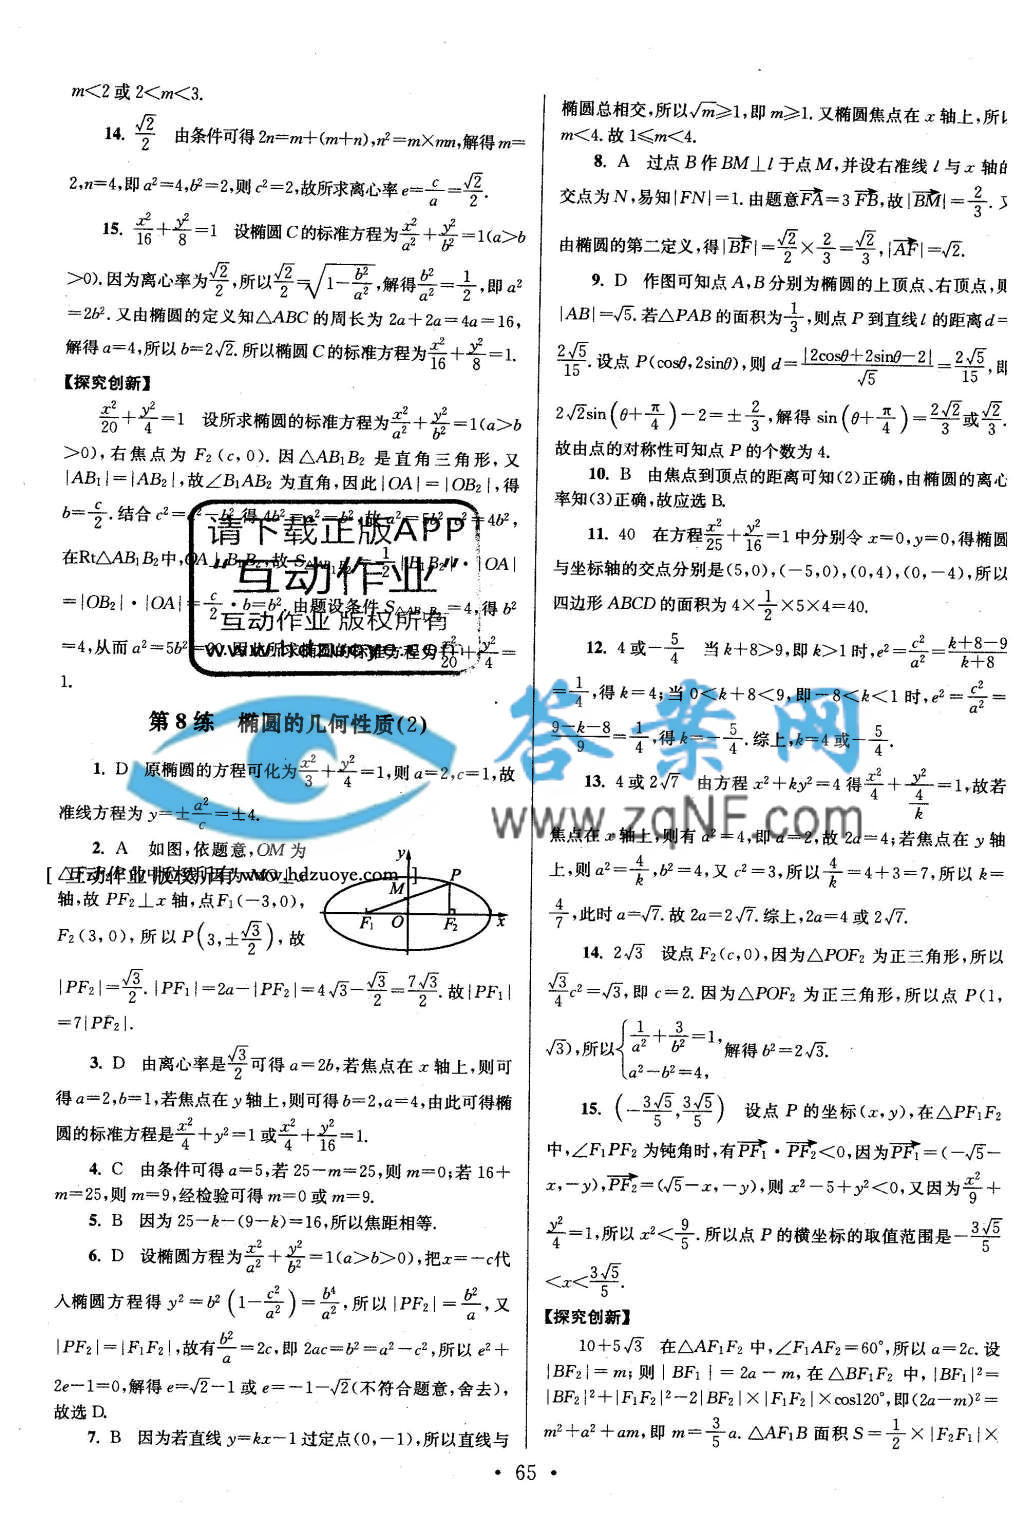 m<2或2<m<3.
14. √2/2 由条件可得2n=m+(m+n),n²=m×mn,解得m=
2,n=4,即a²=4,b²=2,则c²=2,故所求离心率e=c/a=√2/2.
15. x²/16+y²/8=1 设椭圆C的标准方程为x²/a²+y²/b²=1(a>b
>0).因为离心率为√2/2,所以√2/2=√(1-b²/a²),解得b²/a²=1/2,即a²
=2b².又由椭圆的定义知△ABC的周长为2a+2a=4a=16,
解得a=4,所以b=2√2.所以椭圆C的标准方程为x²/16+y²/8=1.
【探究创新】
x²/20+y²/4=1 设所求椭圆的标准方程为x²/a²+y²/b²=1(a>b
>0),右焦点为F₂(c,0).因△AB₁B₂是直角三角形,又
|AB₁|=|AB₂|,故∠B₁AB₂为直角,因此|OA|=|OB₂|,得
b=c/2.结合c²=a²-b²得4b²=a²-b²,故a²=5b²,c²=4b²,
在Rt△AB₁B₂中,OA⊥B₁B₂,故S△AB₁B₂=1/2|B₁B₂|·|OA|
=|OB₂|·|OA|=c/2·b=b².由题设条件S△AB₁B₂=4,得b²
=4,从而a²=5b²=20.因此所求椭圆的标准方程为x²/20+y²/4=
1.
请下载正版APP
"互动作业"
互动作业 版权所有
www.hdzuoye.com
第8练 椭圆的几何性质(2)
1. D 原椭圆的方程可化为x²/3+y²/4=1,则a=2,c=1,故
准线方程为y=±a²/c=±4.
2. A 如图,依题意,OM为
[ 互动作业 版权所有 www.hdzuoye.com ]
轴,故PF₂⊥x轴,点F₁(-3,0),
F₂(3,0),所以P(3,±√3/2),故
y
M
P
F₁
O
F₂
x
|PF₂|=√3/2.|PF₁|=2a-|PF₂|=4√3-√3/2=7√3/2.故|PF₁|
=7|PF₂|.
3. D 由离心率是√3/2可得a=2b,若焦点在x轴上,则可
得a=2,b=1,若焦点在y轴上,则可得b=2,a=4,由此可得椭
圆的标准方程是x²/4+y²=1或x²/4+y²/16=1.
4. C 由条件可得a=5,若25-m=25,则m=0;若16+
m=25,则m=9,经检验可得m=0或m=9.
5. B 因为25-k-(9-k)=16,所以焦距相等.
6. D 设椭圆方程为x²/a²+y²/b²=1(a>b>0),把x=-c代
入椭圆方程得y²=b²(1-c²/a²)=b⁴/a²,所以|PF₂|=b²/a,又
|PF₂|=|F₁F₂|,故有b²/a=2c,即2ac=b²=a²-c²,所以e²+
2e-1=0,解得e=√2-1或e=-1-√2(不符合题意,舍去),
故选D.
7. B 因为若直线y=kx-1过定点(0,-1),所以直线与
椭圆总相交,所以√m≥1,即m≥1.又椭圆焦点在x轴上,所以
m<4.故1≤m<4.
8. A 过点B作BM⊥l于点M,并设右准线l与x轴的
交点为N,易知|FN|=1.由题意FA=3FB,故|BM|=2/3.又
由椭圆的第二定义,得|BF|=√2/2×2/3=√2/3,|AF|=√2.
9. D 作图可知点A,B分别为椭圆的上顶点、右顶点,则
|AB|=√5.若△PAB的面积为1/3,则点P到直线l的距离d=
2√5/15.设点P(cosθ,2sinθ),则d=|2cosθ+2sinθ-2|/√5=2√5/15,即
2√2sin(θ+π/4)-2=±2/3,解得sin(θ+π/4)=2√2/3或√2/3.
故由点的对称性可知点P的个数为4.
10. B 由焦点到顶点的距离可知(2)正确,由椭圆的离心
率知(3)正确,故应选B.
11. 40 在方程x²/25+y²/16=1中分别令x=0,y=0,得椭圆
与坐标轴的交点分别是(5,0),(-5,0),(0,4),(0,-4),所以
四边形ABCD的面积为4×1/2×5×4=40.
12. 4或-5/4 当k+8>9,即k>1时,e²=c²/a²=(k+8-9)/(k+8)
=1/4,得k=4;当0<k+8<9,即-8<k<1时,e²=c²/a²=
(9-k-8)/9=1/4,得k=-5/4.综上,k=4或-5/4.
13. 4或2√7 由方程x²+ky²=4得x²/4+y²/(4/k)=1,故若
焦点在x轴上,则有a²=4,即a=2,故2a=4;若焦点在y轴
上,则a²=4/k,b²=4,又c²=3,所以4/k=4+3=7,所以k=
4/7,此时a=√7.故2a=2√7.综上,2a=4或2√7.
答案网
www.zqNF.com
14. 2√3 设点F₂(c,0),因为△POF₂为正三角形,所以
√3/4c²=√3,即c=2.因为△POF₂为正三角形,所以点P(1,
√3),所以{1/a²+3/b²=1, a²-b²=4, 解得b²=2√3.
15. (-3√5/5,3√5/5) 设点P的坐标(x,y),在△PF₁F₂
中,∠F₁PF₂为钝角时,有PF₁·PF₂<0,因为PF₁=(-√5-
x,-y),PF₂=(√5-x,-y),则x²-5+y²<0,又因为x²/9+
y²/4=1,所以x²<9/5.所以点P的横坐标的取值范围是-3√5/5
<x<3√5/5.
【探究创新】
10+5√3 在△AF₁F₂中,∠F₁AF₂=60°,所以a=2c.设
|BF₂|=m;则|BF₁|=2a-m,在△BF₁F₂中,|BF₁|²=
|BF₂|²+|F₁F₂|²-2|BF₂|×|F₁F₂|×cos120°,即(2a-m)²=
m²+a²+am,即m=3/5a.△AF₁B面积S=1/2×|F₂F₁|×
· 65 ·